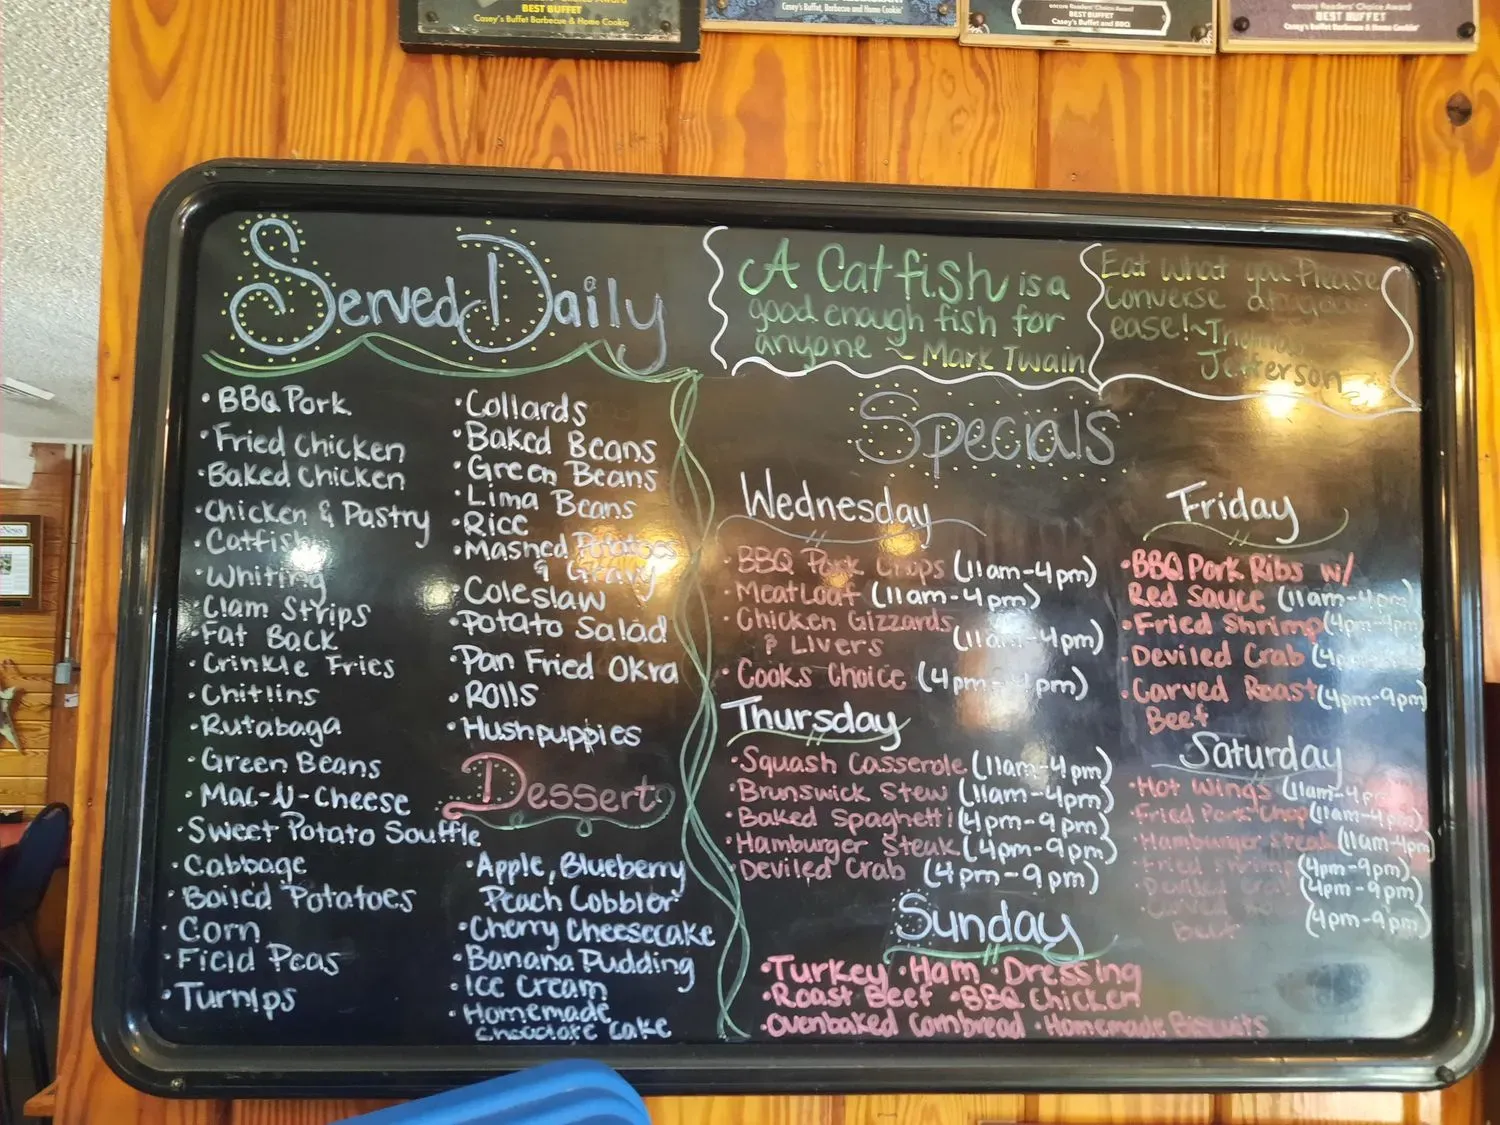 BEST BUFFET
Casey's Buffet Barbecue & Home Cookin
Casey's Buffet, Barbecue and Home Cookin'
encore Readers' Choice Award
BEST BUFFET
Casey's Buffet and BBQ
encore Readers' Choice Award
BEST BUFFET
Casey's Buffet Barbecue & Home Cookin'
Served Daily
• BBQ Pork
• Fried Chicken
• Baked Chicken
• Chicken & Pastry
• Catfish
• Whiting
• Clam Strips
• Fat Back
• Crinkle Fries
• Chitlins
• Rutabaga
• Green Beans
• Mac-N-Cheese
• Sweet Potato Souffle
• Cabbage
• Boiled Potatoes
• Corn
• Field Peas
• Turnips
• Collards
• Baked Beans
• Green Beans
• Lima Beans
• Rice
• Mashed Potatoes
& Gravy
• Coleslaw
• Potato Salad
• Pan Fried Okra
• Rolls
• Hushpuppies
Dessert
• Apple, Blueberry
Peach Cobbler
• Cherry Cheesecake
• Banana Pudding
• Ice Cream
• Homemade
Chocolate Cake
A Catfish is a
good enough fish for
anyone ~ Mark Twain
Eat what you Please
converse
ease! ~ Thomas
Jefferson
Specials
Wednesday
• BBQ Pork Chops (11am-4pm)
• Meatloaf (11am-4pm)
• Chicken Gizzards
& Livers (11am-4pm)
• Cooks Choice (4pm- pm)
Thursday
• Squash Casserole (11am-4pm)
• Brunswick Stew (11am-4pm)
• Baked Spaghetti (4pm-9pm)
• Hamburger Steak (4pm-9pm)
• Deviled Crab (4pm-9pm)
Friday
• BBQ Pork Ribs w/
Red Sauce (11am-4pm)
• Fried Shrimp (4pm-9pm)
• Deviled Crab (4pm
• Carved Roast (4pm-9pm)
Beef
Saturday
• Hot Wings (11am-4pm)
• Fried Pork Chop (11am-4pm)
• Hamburger Steak (11am-4pm)
• Fried Shrimp (4pm-9pm)
• Deviled Crab (4pm-9pm)
(4pm-9pm)
Beef
Sunday
• Turkey • Ham • Dressing
• Roast Beef • BBQ Chicken
• Ovenbaked Cornbread • Homemade Biscuits